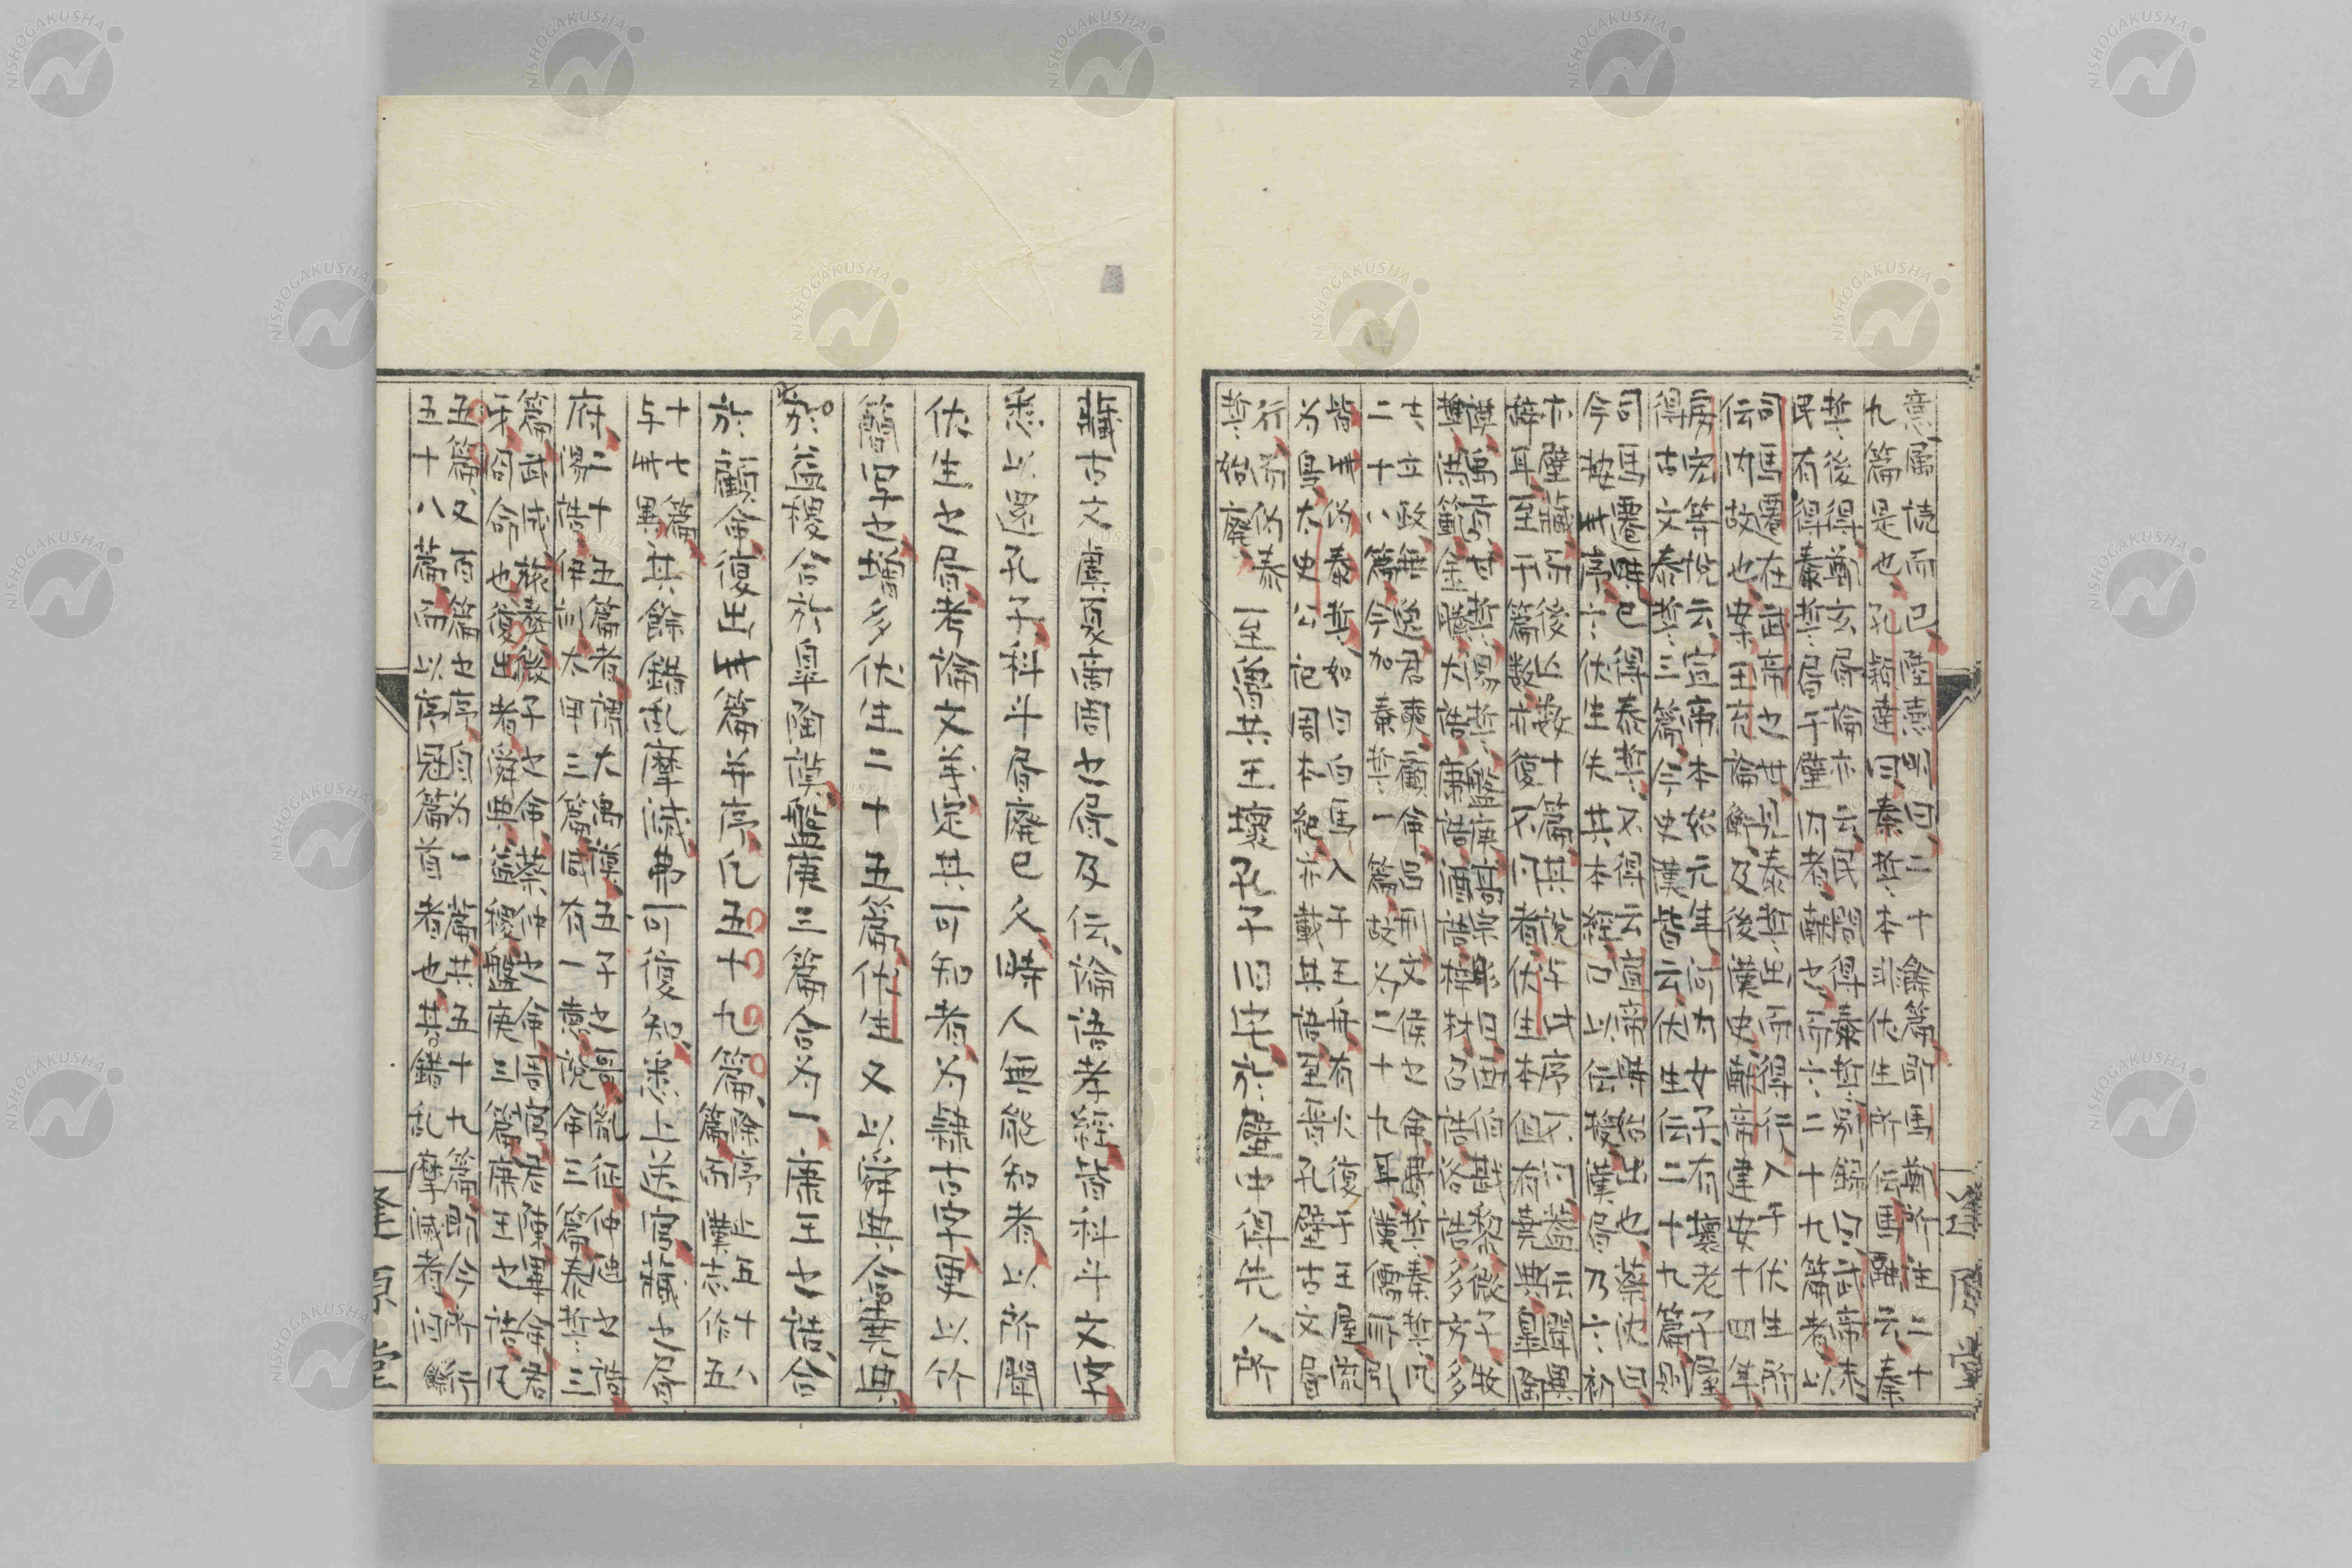 意屬読而已、陸徳明曰、二十餘篇即馬鄭所注二十
九篇是也、孔穎達曰、秦誓本非伏生所伝、馬融云、秦
誓後得、鄭玄書論亦云民間得秦誓、別録曰、武帝末
民有得秦誓書于壁内者献也、而六二十九篇者以
司馬遷在武帝之世、見泰誓出而得行入于伏生所
伝内故也、案王充論衡及後漢史献帝建安十四年
房宏等説云、宣帝本始元年河内女子有壞老子屋
得古文泰誓三篇、今史漢皆云伏生伝二十九篇則
司馬遷時已得泰誓、不得云宣帝時始出也、蔡沈曰
今按此序六伏生失其本經口以伝授漢書乃六初
亦壁藏而後亡数十篇其説与此序不同、盖云聞異
辞耳、至于篇数亦復不同者、伏生本但有堯典皐陶
謨禹貢甘誓湯誓盤庚高宗肜日西伯戡黎微子牧
誓洪範金縢大誥康誥酒誥梓材召誥洛誥多方多
士立政無逸君奭顧命呂刑文侯之命費誓秦誓凡
二十八篇今加秦誓一篇、故为二十九耳、漢儒所引
皆此偽泰誓、如曰白馬入于王舟有火復于王屋流
为烏、太史公記周本紀亦載其語、至晋孔壁古文書
行而偽泰
誓始廃
至魯共王壞孔子旧宅於壁中得先人所
藏古文虞夏商周之書、及伝論語孝經、皆科斗文字
悉以還孔子、科斗書廢已久、時人無能知者、以所聞
伏生之書、考論文義、定其可知者、为隷古字、更以竹
簡写之、増多伏生二十五篇、伏生又以舜典合堯典
於益稷合於皐陶謨、盤庚三篇合为一、康王之誥合
於顧命、復出此篇并序、凡五十九篇、
除序止五十八
篇而漢志作五
十七篇
与此異
其餘錯乱摩滅、弗可復知、悉上送官、藏之書
府、
二十五篇者、謂大禹謨五子之歌胤征仲虺之誥
湯誥伊訓太甲三篇咸有一徳説命三篇泰誓三
篇武成旅獒微子之命蔡仲之命周官君陳畢命君
牙冏命也、復出者舜典益稷盤庚三篇康王之誥凡
五篇、又百篇之序自为一篇、共五十九篇、即今所行
五十八篇、而以序冠篇首者也、其錯乱摩滅者